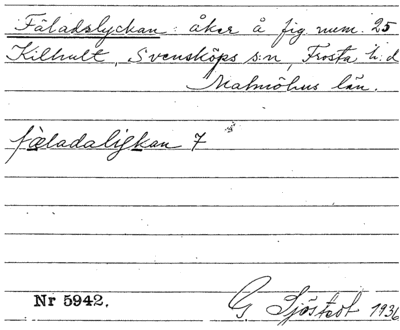 Fäladslyckan: åker å fig. num. 25
Kilhult, Svensköps s:n, Frosta h:d
Malmöhus län.
fäladalykan 7
Nr 5942.
G Sjöstedt 1936